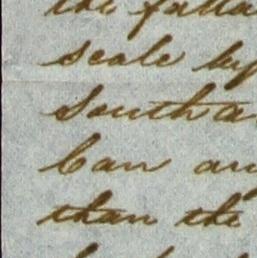 the falla
scale by
South a
can an
than the